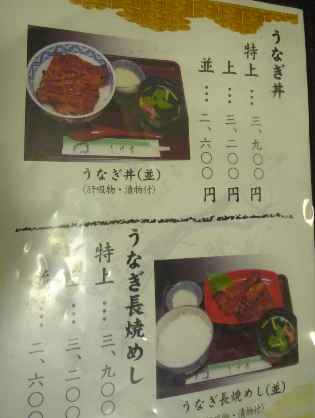 うなぎ丼
特上…三、九〇〇円
上…三、二〇〇円
並…二、六〇〇円
うなぎ丼(並)
(肝吸物・漬物付)
うなぎ長焼めし
特上…三、九〇
上…三、二〇
並…二、六〇
うなぎ長焼めし(並)
吸物・漬物付)